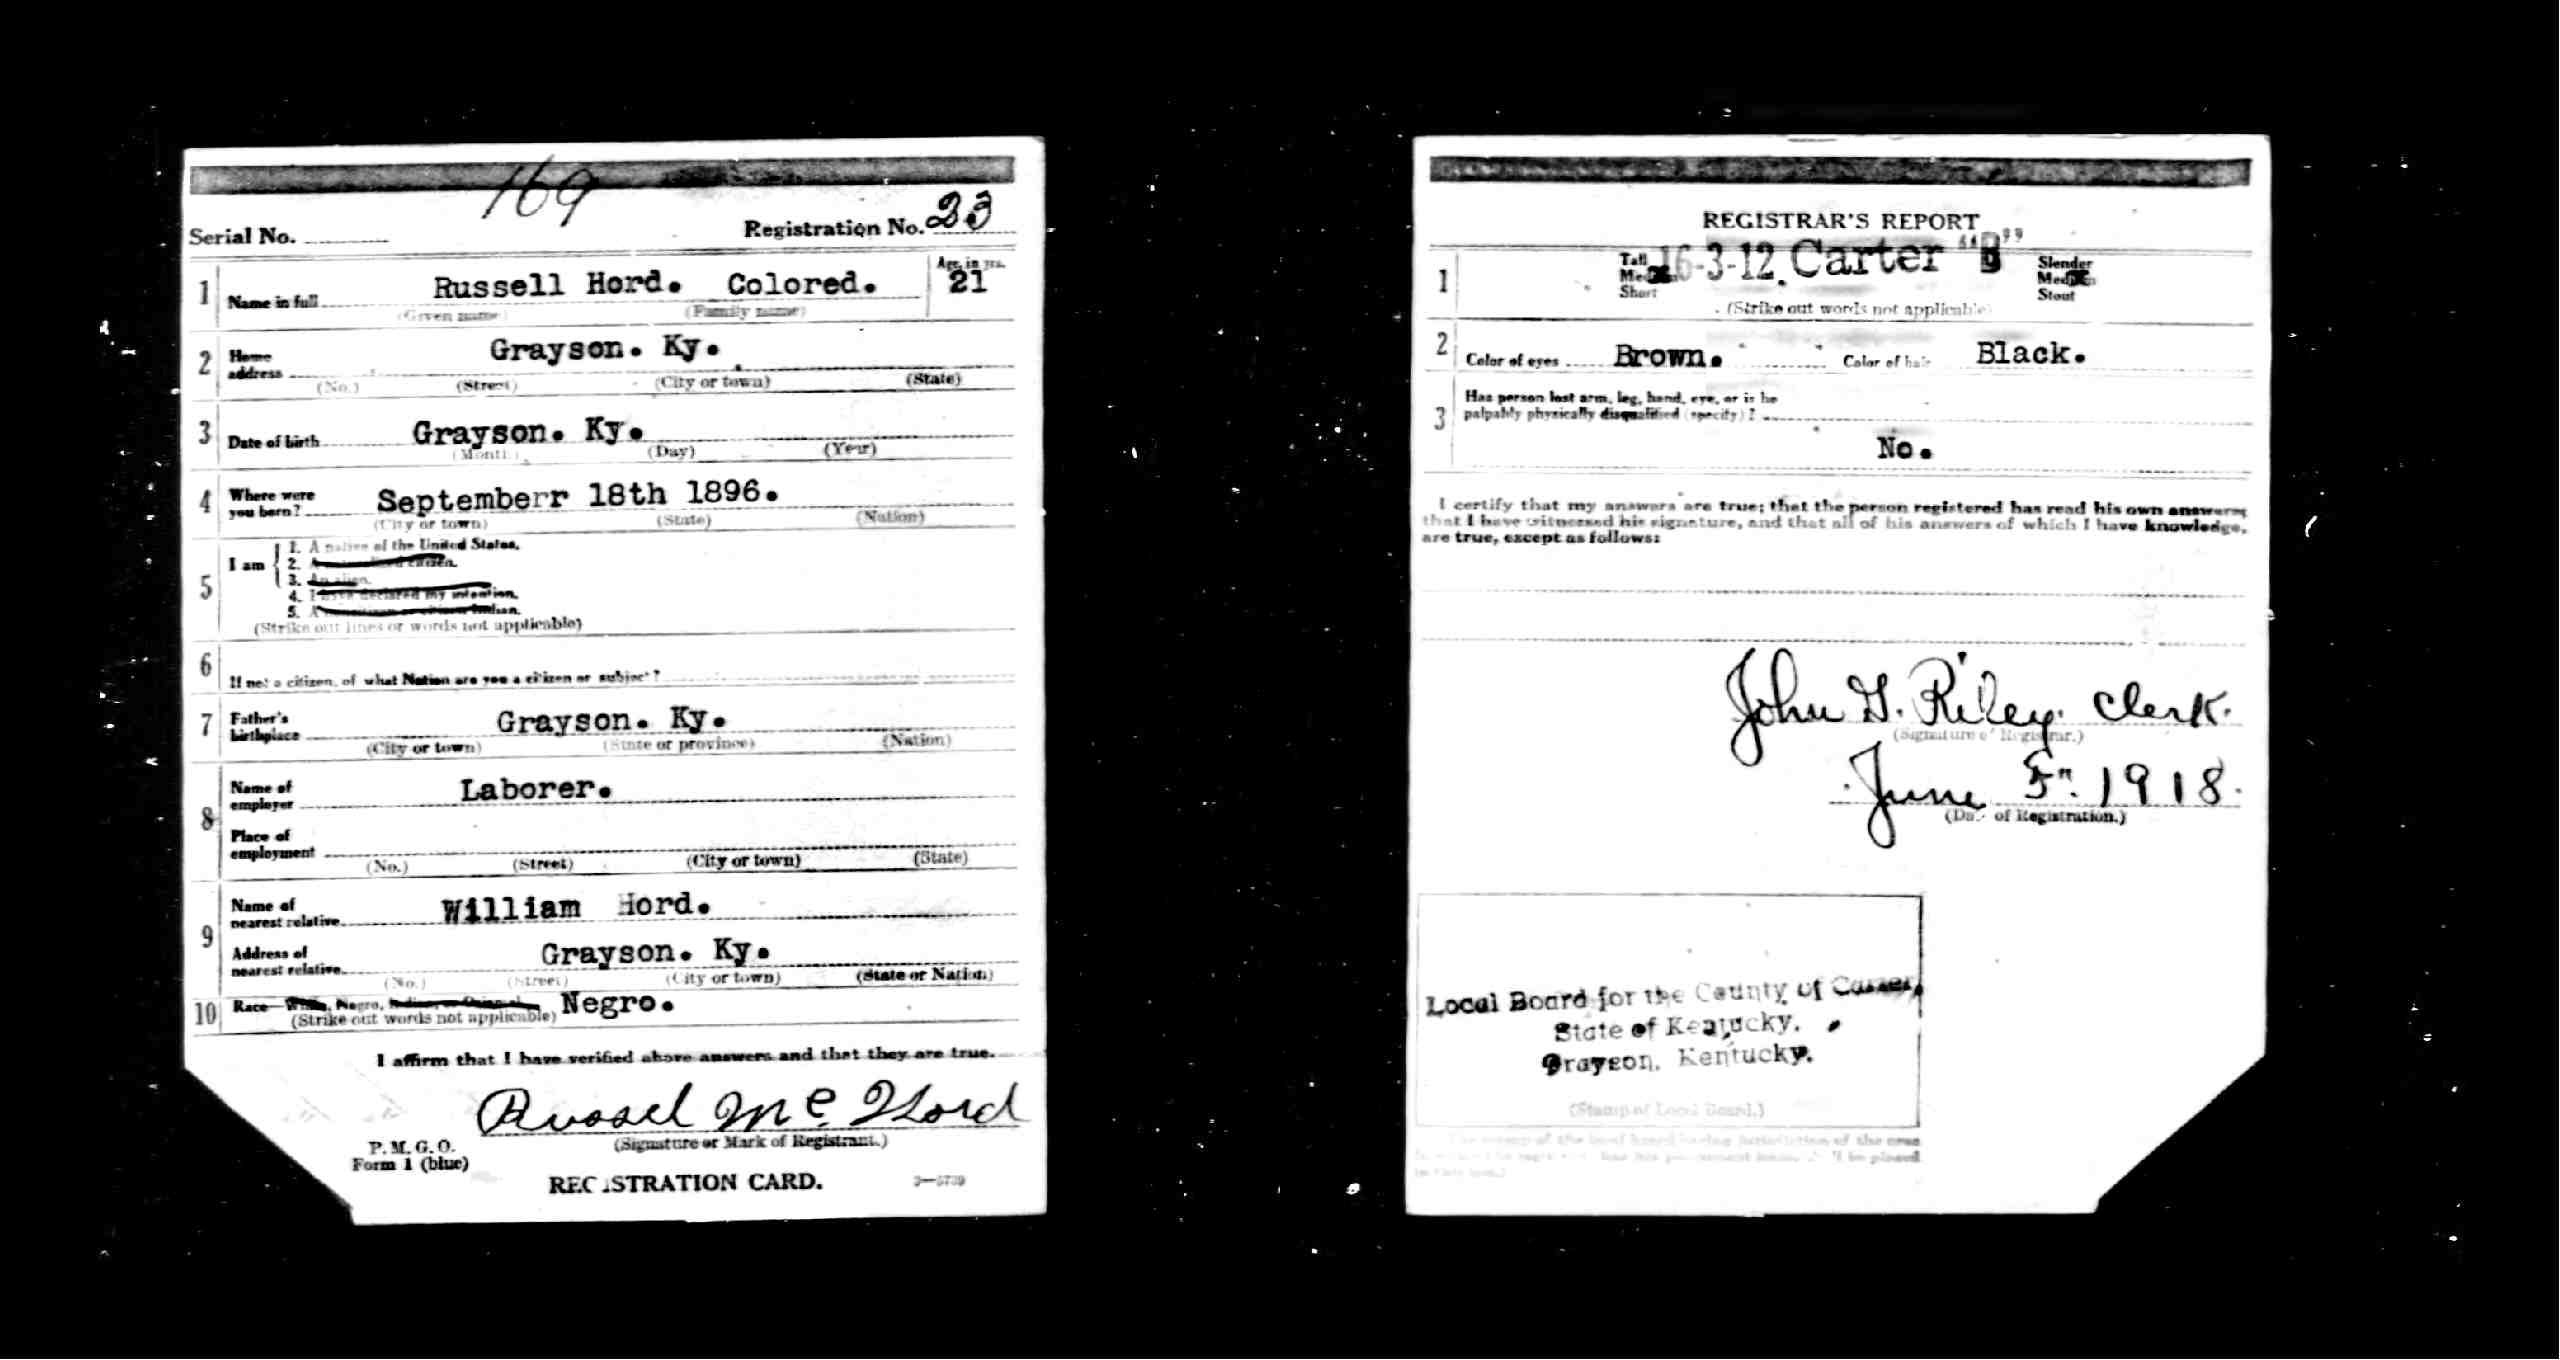 169
Serial No. Registration No. 23
1 Name in full Russell Hord. Colored. Age, in yrs. 21
(Given name) (Family name)
2 Home address Grayson. Ky.
(No.) (Street) (City or town) (State)
3 Date of birth Grayson. Ky.
(Month) (Day) (Year)
4 Where were you born? Septemberr 18th 1896.
(City or town) (State) (Nation)
5 I am
1. A native of the United States.
2. A citizen.
3. An alien.
4. I have declared my intention.
5. A Indian.
(Strike out lines or words not applicable)
6 If not a citizen, of what Nation are you a citizen or subject?
7 Father's birthplace Grayson. Ky.
(City or town) (State or province) (Nation)
8 Name of employer Laborer.
Place of employment
(No.) (Street) (City or town) (State)
9 Name of nearest relative William Hord.
Address of nearest relative Grayson. Ky.
(No.) (Street) (City or town) (State or Nation)
10 Race—White, Negro, Indian, or Negro.
(Strike out words not applicable)
I affirm that I have verified above answers and that they are true.
Russel Mc. Hord
(Signature or Mark of Registrant.)
P. M. G. O.
Form 1 (blue)
REGISTRATION CARD.
REGISTRAR'S REPORT
16-3-12. Carter "B"
1 Tall Slender
Medium Medium
Short Stout
(Strike out words not applicable)
2 Color of eyes Brown. Color of hair Black.
3 Has person lost arm, leg, hand, eye, or is he
palpably physically disqualified (specify)?
No.
I certify that my answers are true; that the person registered has read his own answers;
that I have witnessed his signature, and that all of his answers of which I have knowledge,
are true, except as follows:
John G. Riley. Clerk.
(Signature of Registrar.)
June 5" 1918.
(Date of Registration.)
Local Board for the County of Carter,
State of Kentucky.
Grayson, Kentucky.
(Stamp of Local Board.)